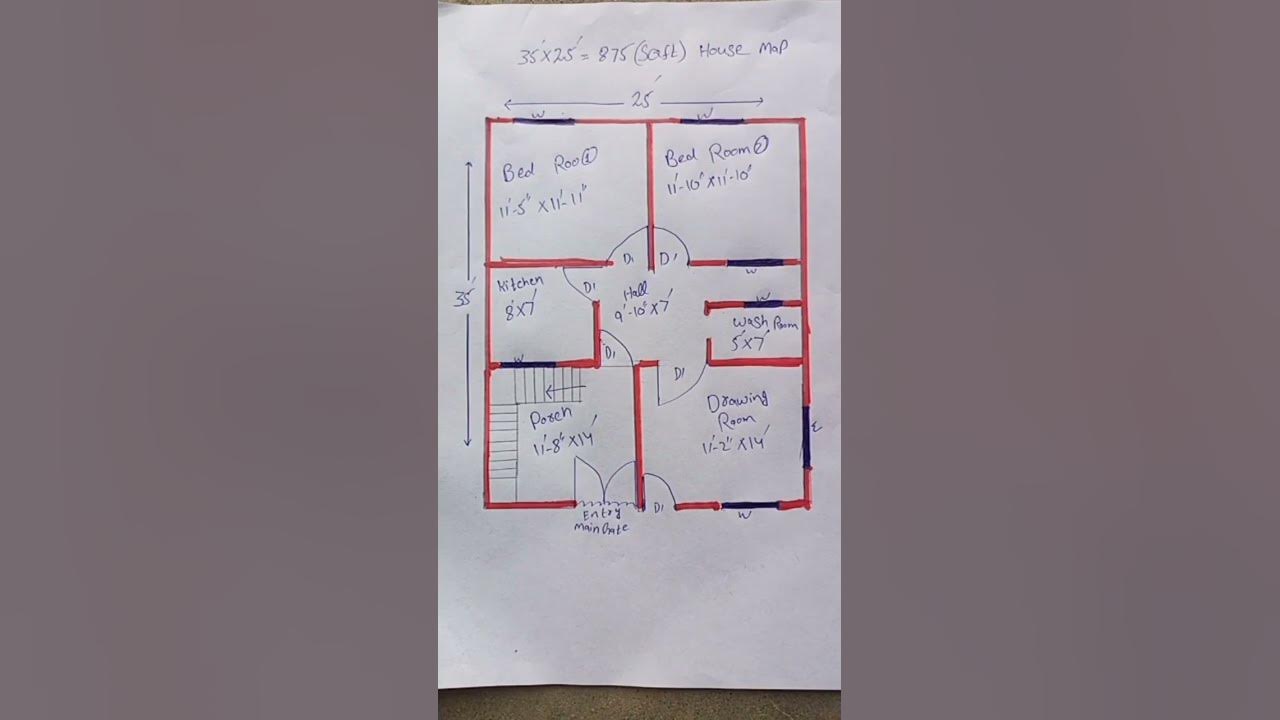 35'X25' = 875(Sqft) House Map
25'
W
W
Bed Roo①
11'-5" X11'-11"
Bed Room②
11'-10" X11'-10"
35'
D1
D1
W
Kitchen
8'X7'
D1
Hall
9'-10"X7'
W
Wash Room
5'X7'
W
D1
D1
Porch
11'-8"X14'
Drawing
Room
11'-2"X14'
W
Entry
Main Gate
D1
W